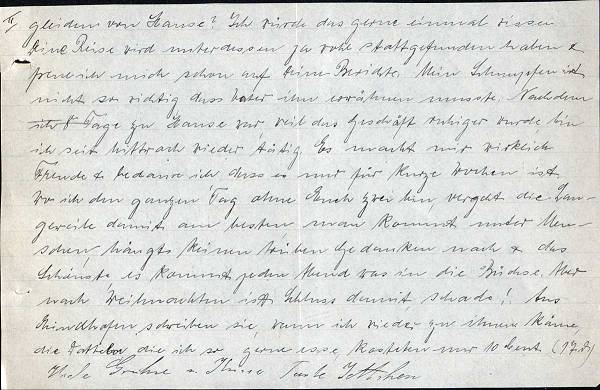 II
gleiden von Hause? Ich würde das gerne einmal wissen
Deine Reise wird unterdessen ja wohl stattgefunden haben &
freue ich mich schon auf Deine Berichte. Mein Schnupfen ist
nicht so wichtig dass Vater ihn erwähnen musste. Nachdem
ich 8 Tage zu Hause war, weil das Geschäft ruhiger wurde, bin
ich seit Mittwoch wieder tätig. Es macht mir wirklich
Freude & bedaure ich dass es nur für kurze Wochen ist
Wo ich den ganzen Tag ohne Euch zwei bin vergeht die Lan-
geweile damit am besten, man kommt unter Men-
schen, hängts keinen trüben Gedanken nach & das
Schönste es kommt jeden Abend was in die Büchse. Aber
nach Weihnachten ist Schluss damit schade! Aus
schreiben sie, wann ich wieder zu ihnen käme,
die Datteln die ich so gerne esse kosteten nur 10 Cent (17 )
Viele Grüsse u. Küsse